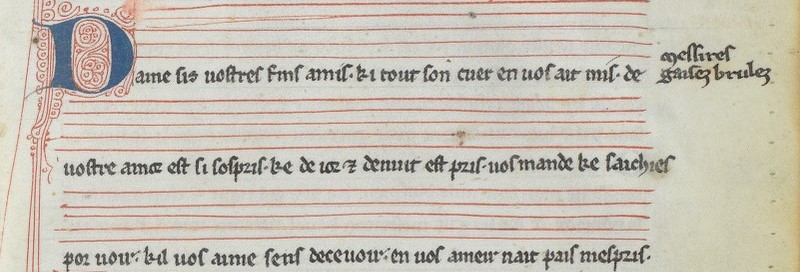 Dame sis uostres fins amis· ki tout son cuer en uos ait mis· de
messires
gaisez brulez
uostre amor est si sospris· ke de ior ⁊ denuit est pris· uos mande ke saichies
por uoir· kil uos aime sens deceuoir· en uos ameir nait pais mespris·